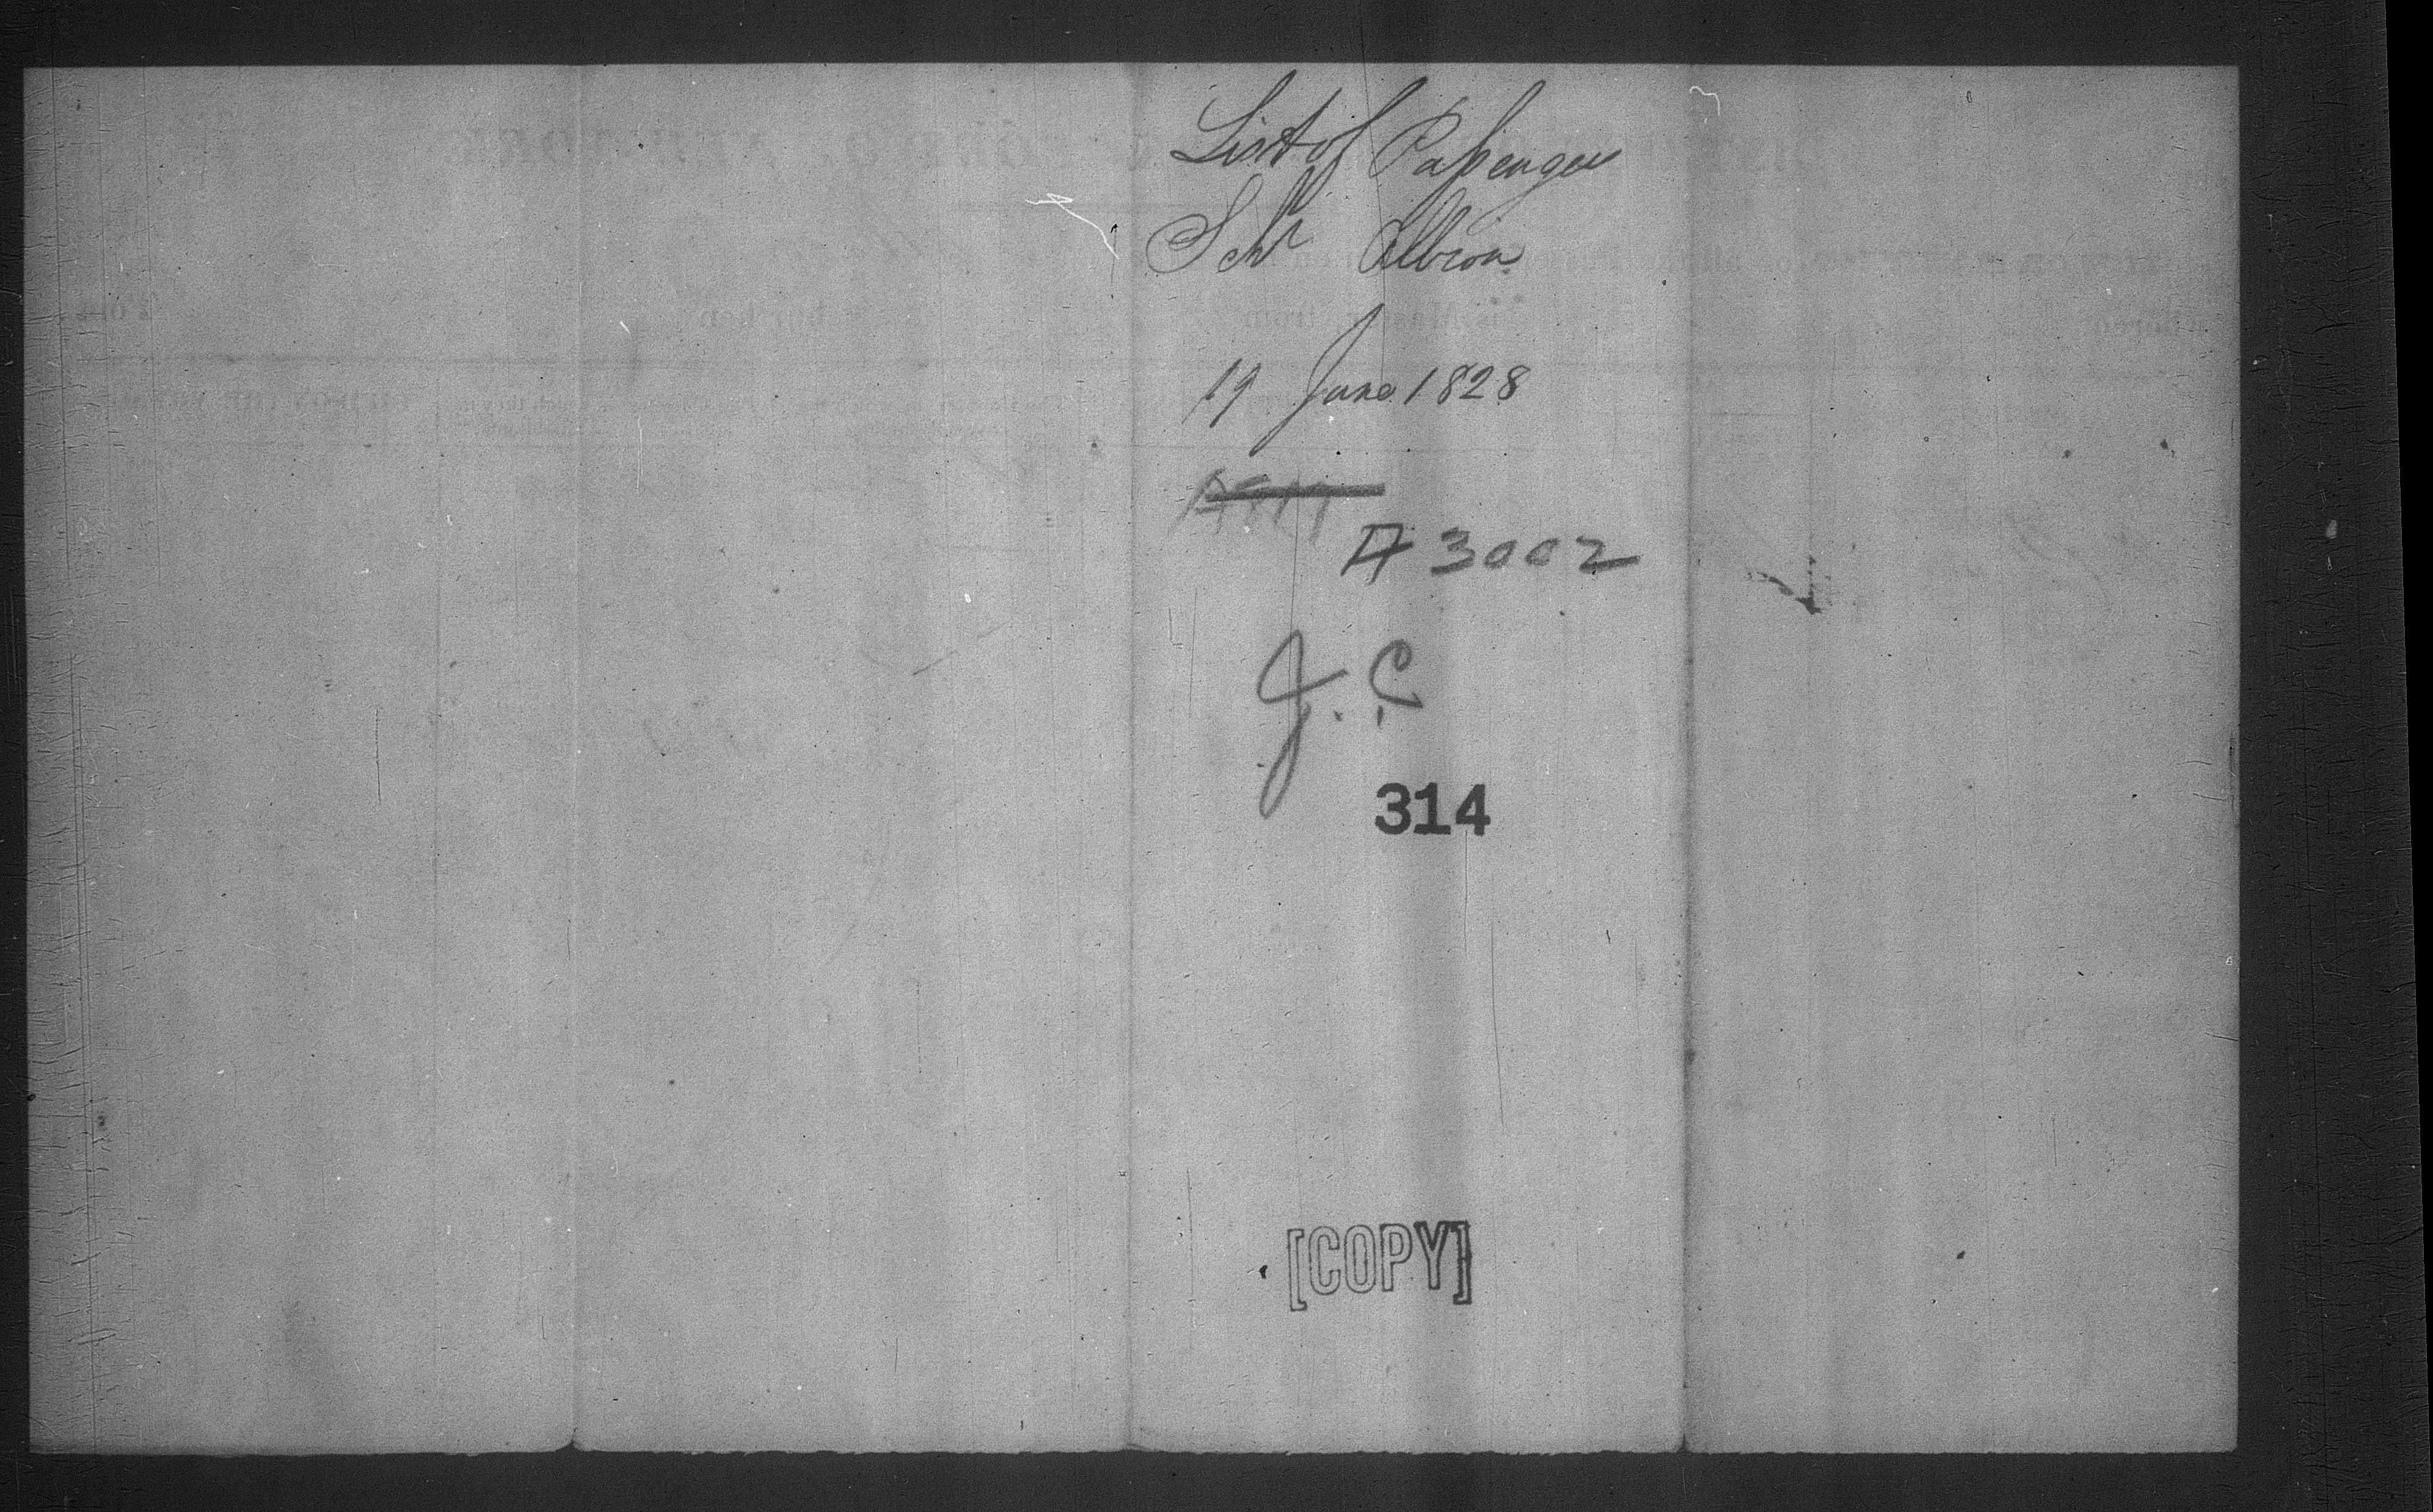 List of Passengers
Schr Albion
19 June 1828
A 3002
J. C.
314
[COPY]